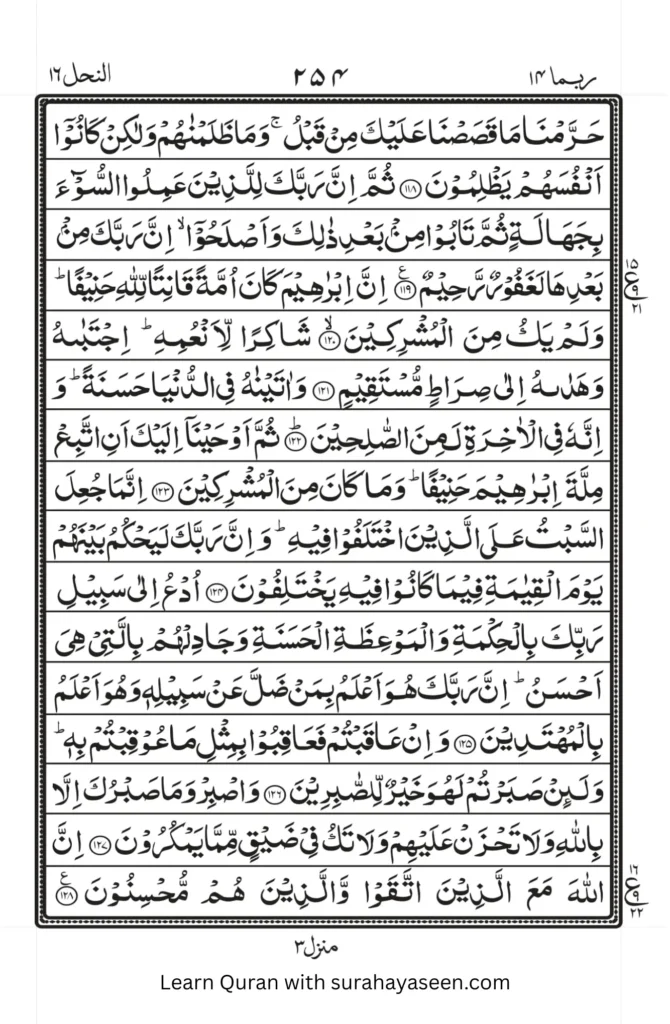 ربما ١٤ ٢٥٤ النحل ١٦
حَرَّمْنَا مَا قَصَصْنَا عَلَيْكَ مِنْ قَبْلُ ۚ وَمَا ظَلَمْنٰهُمْ وَلٰكِنْ كَانُوْۤا
اَنْفُسَهُمْ يَظْلِمُوْنَ ﴿۱۱۸﴾ ثُمَّ اِنَّ رَبَّكَ لِلَّذِيْنَ عَمِلُوا السُّوْٓءَ
بِجَهَالَةٍ ثُمَّ تَابُوْا مِنْۢ بَعْدِ ذٰلِكَ وَاَصْلَحُوْۤا ۙ اِنَّ رَبَّكَ مِنْۢ
بَعْدِهَا لَغَفُوْرٌ رَّحِيْمٌ ﴿۱۱۹﴾ ع اِنَّ اِبْرٰهِيْمَ كَانَ اُمَّةً قَانِتًا لِّلّٰهِ حَنِيْفًا ؕ
١٥ ع ٩ ٢١
وَلَمْ يَكُ مِنَ الْمُشْرِكِيْنَ ﴿۱۲۰﴾ ۙ شَاكِرًا لِّاَنْعُمِهٖ ؕ اِجْتَبٰىهُ
وَهَدٰىهُ اِلٰى صِرَاطٍ مُّسْتَقِيْمٍ ﴿۱۲۱﴾ وَاٰتَيْنٰهُ فِى الدُّنْيَا حَسَنَةً ؕ وَ
اِنَّهٗ فِى الْاٰخِرَةِ لَمِنَ الصّٰلِحِيْنَ ﴿۱۲۲﴾ ؕ ثُمَّ اَوْحَيْنَاۤ اِلَيْكَ اَنِ اتَّبِعْ
مِلَّةَ اِبْرٰهِيْمَ حَنِيْفًا ؕ وَمَا كَانَ مِنَ الْمُشْرِكِيْنَ ﴿۱۲۳﴾ اِنَّمَا جُعِلَ
السَّبْتُ عَلَى الَّذِيْنَ اخْتَلَفُوْا فِيْهِ ؕ وَاِنَّ رَبَّكَ لَيَحْكُمُ بَيْنَهُمْ
يَوْمَ الْقِيٰمَةِ فِيْمَا كَانُوْا فِيْهِ يَخْتَلِفُوْنَ ﴿۱۲۴﴾ اُدْعُ اِلٰى سَبِيْلِ
رَبِّكَ بِالْحِكْمَةِ وَالْمَوْعِظَةِ الْحَسَنَةِ وَجَادِلْهُمْ بِالَّتِىْ هِىَ
اَحْسَنُ ؕ اِنَّ رَبَّكَ هُوَ اَعْلَمُ بِمَنْ ضَلَّ عَنْ سَبِيْلِهٖ وَهُوَ اَعْلَمُ
بِالْمُهْتَدِيْنَ ﴿۱۲۵﴾ وَاِنْ عَاقَبْتُمْ فَعَاقِبُوْا بِمِثْلِ مَا عُوْقِبْتُمْ بِهٖ ؕ
وَلَىِٕنْ صَبَرْتُمْ لَهُوَ خَيْرٌ لِّلصّٰبِرِيْنَ ﴿۱۲۶﴾ وَاصْبِرْ وَمَا صَبْرُكَ اِلَّا
بِاللّٰهِ وَلَا تَحْزَنْ عَلَيْهِمْ وَلَا تَكُ فِىْ ضَيْقٍ مِّمَّا يَمْكُرُوْنَ ﴿۱۲۷﴾ اِنَّ
اللّٰهَ مَعَ الَّذِيْنَ اتَّقَوْا وَّالَّذِيْنَ هُمْ مُّحْسِنُوْنَ ﴿۱۲۸﴾ ع
١٦ ع ٩ ٢٢
منزل ٣
Learn Quran with surahayaseen.com